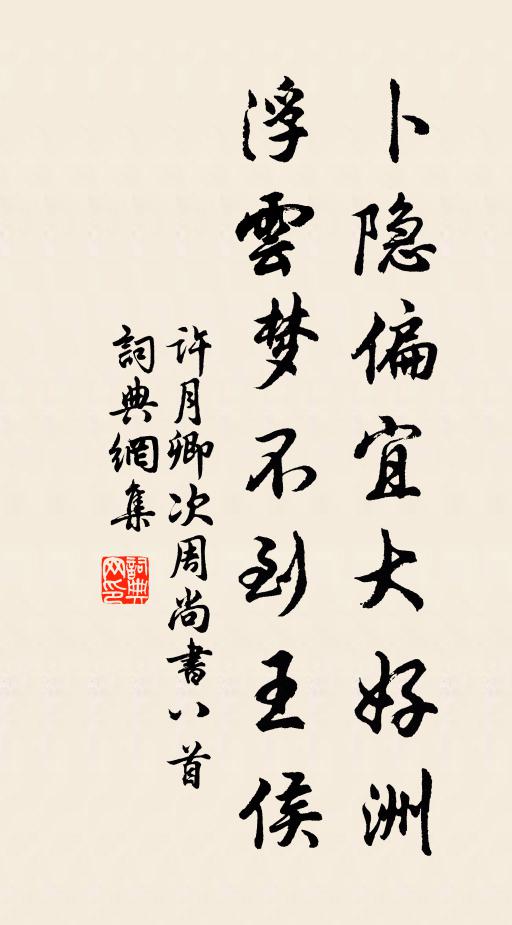 卜隐偏宜大好洲
浮雲梦不到王侯
许月卿次周尚書八首
詞典網集
詞典网印